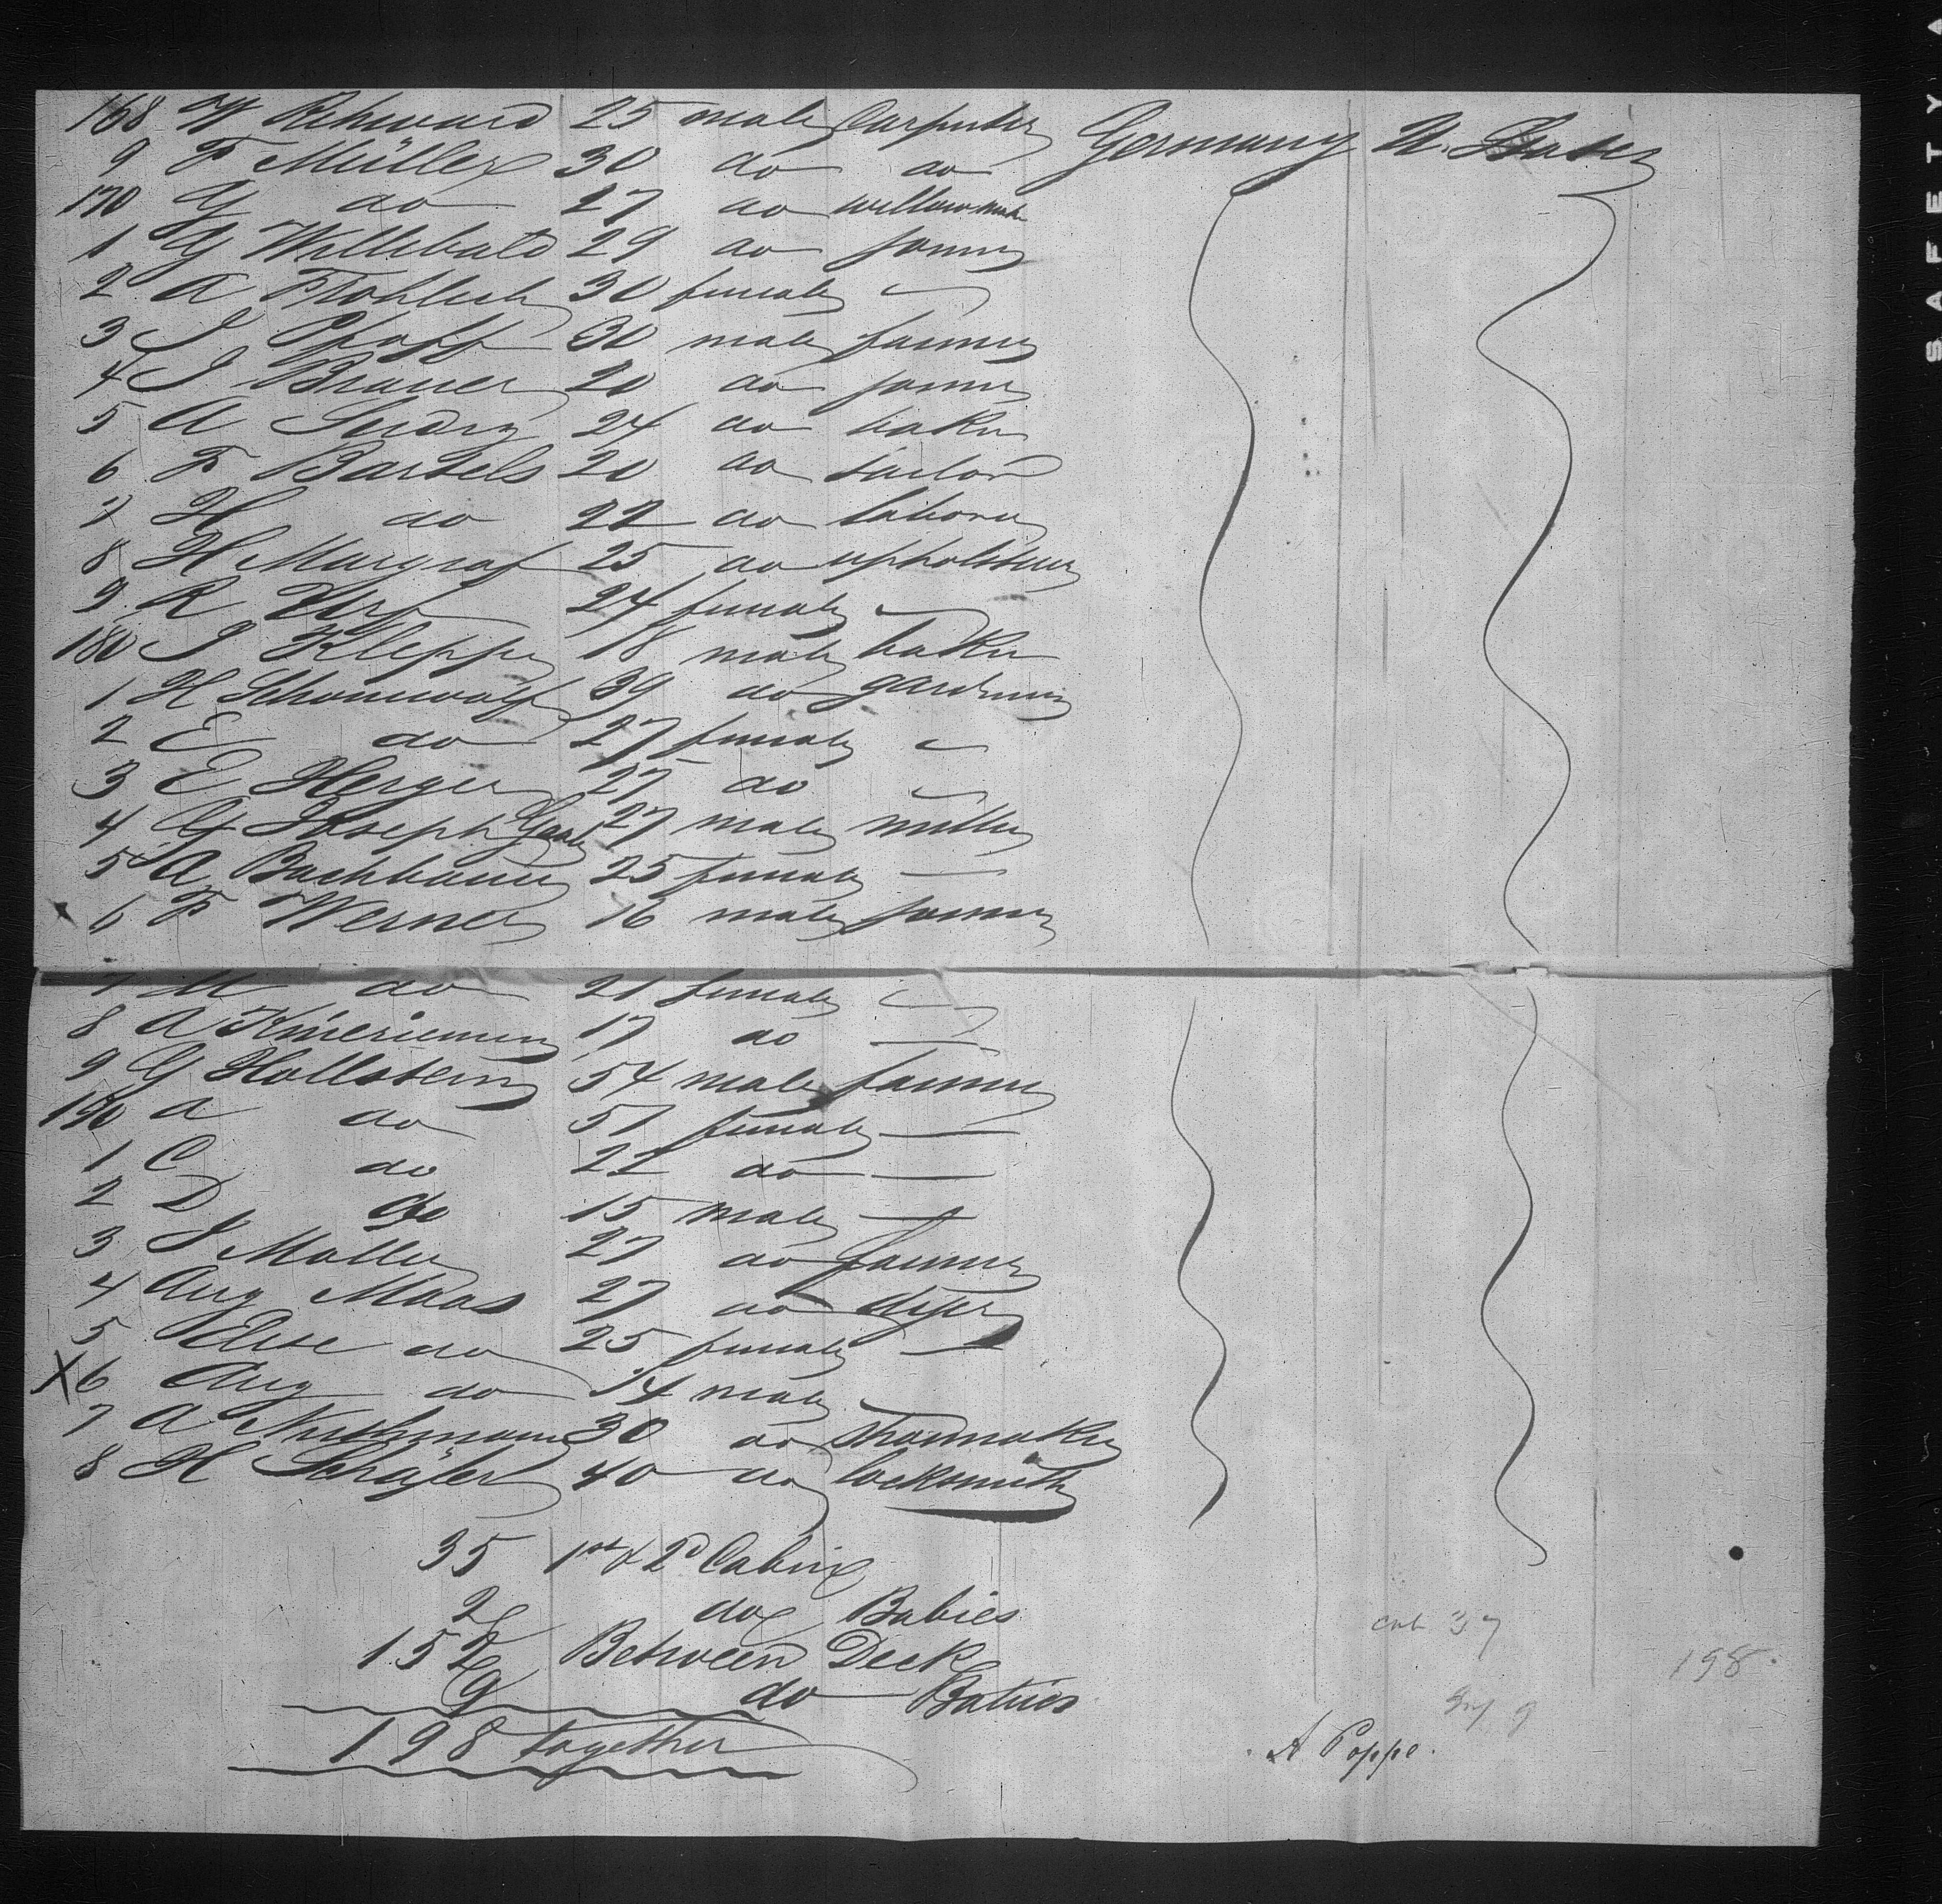 168 W Rehward 25 male Carpenter Germany U. States
9 F Müller 30 do do
170 G do 27 do
1 G Willebald 29 do farmer
2 A Frohlich 30 female
3 J Pfaff 30 male farmer
4 J Brauer 20 do farmer
5 A 24 do baker
6 F Bartels 20 do tailor
7 H do 22 do laborer
8 H Margraf 25 do upholsterer
9 R 24 female
180 J Kleppe 18 male baker
1 H Schonewolf 39 do gardener
2 E do 27 female
3 E Herger 27 do
4 G Joseph 27 male miller
5 A Bachbauer 25 female —
6 F Werner 16 male farmer
7 M do 21 female
8 A 17 do —
9 G Hollstein 54 male farmer
190 A do 51 female —
1 C do 22 do —
2 D do 15 male —
3 J Moller 27 do farmer
4 Aug Maas 27 do
5 Else do 25 female —
X6 Aug do male
7 A 30 do shoemaker
8 H Schäfer 40 do locksmith
35 1st & 2d Cabin
2 do Babies
152 Between Deck
9 do Babies
198 together
cab 37
198.
9
A Poppe.
SAFETY A